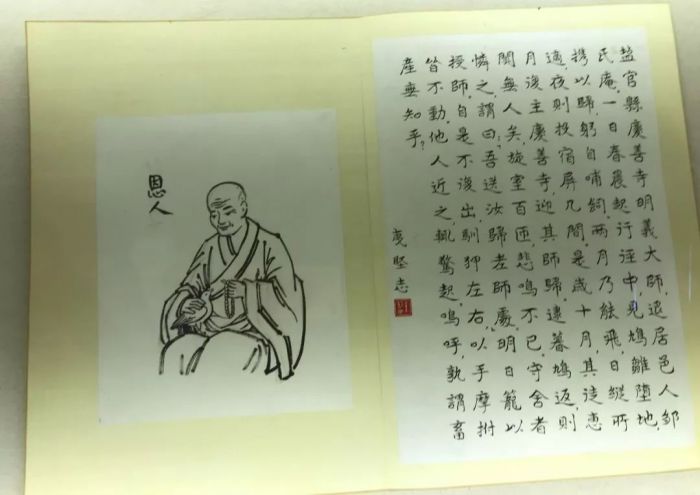 盐官縣慶善寺明義大師,退居邑人邹
民庵,一日春晨起行迳中,見鳩雛墮地,
携以歸,躬自哺飼,兩月乃能飛,日縱所
適,夜則投宿屏几間,是歲十月,其徒惠
月復主慶善寺,迎其師歸,逮暮鳩返,則
闃無人矣,旋室百匝,悲鳴不已,守舍者
憐之,謂曰:吾送汝歸老師處,明日籠以
授師,自是不復出,馴狎左右,以手摩拊
皆不動,他人近之,輒驚起,嗚呼,孰謂畜
產無知乎?
夷堅志
恩人